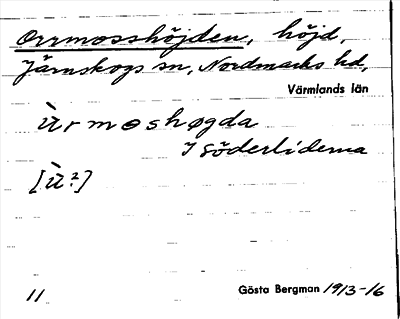 Orrmosshöjden, höjd,
Järnskogs sn, Nordmarks hd,
Värmlands län
ùrmɵshøgda
I Söderliderna
[ù?]
11
Gösta Bergman 1913-16